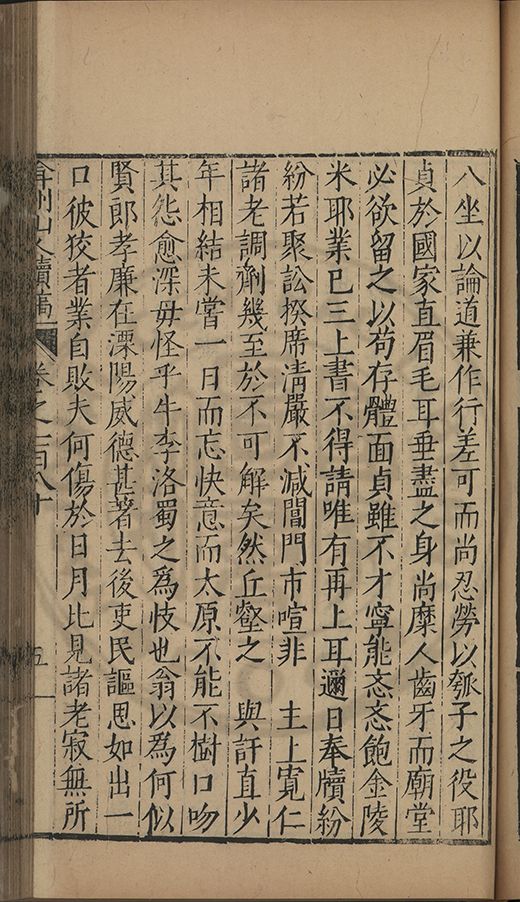 八坐以論道兼作行差可而尚忍勞以瓠子之役耶
貞於國家直眉毛耳垂盡之身尚糜人齒牙而廟堂
必欲留之以苟存體面貞雖不才寧能忞忞飽金陵
米耶業已三上書不得請唯有再上耳邇日奉牘紛
紛若聚訟揆席清嚴不減闤門市喧非 主上寬仁
諸老調劑幾至於不可解矣然丘壑之 與訐直少
年相結未嘗一日而忘快意而太原不能不樹口吻
其怨愈深毋怪乎牛李洛蜀之為岐也翁以為何似
賢郎孝廉在溧陽威德甚著去後吏民謳思如出一
口彼狡者業自敗夫何傷於日月比見諸老寂無所
弇州山人續稿 卷之一百八十 五